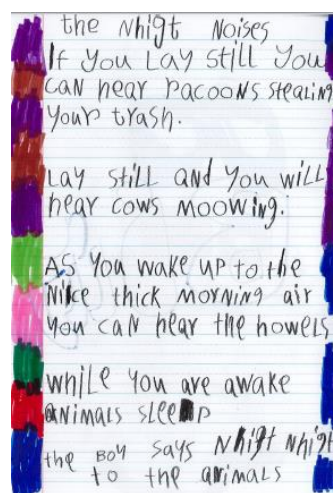 the Nhigt Noises
If You Lay Still You
CAN hear racoons stealing
Your trash.
Lay still and you will
hear cows moowing.
AS You wake up to the
Nike thick morning air
You can hear the howels
while you are awake
animals sleep
the Boy says Nhift Nhigt
to the animals